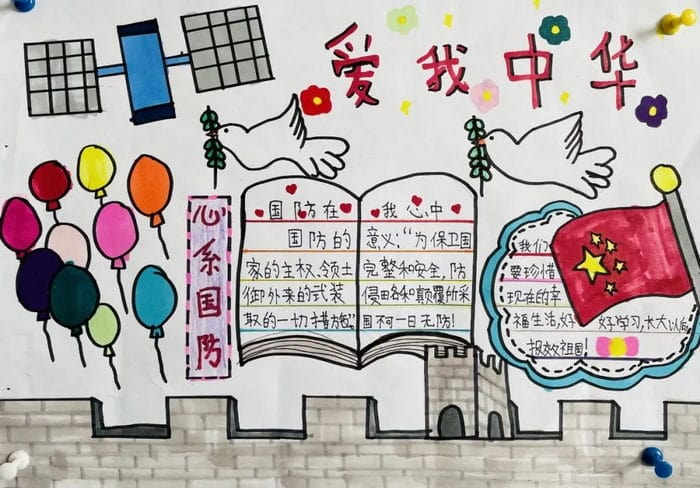 爱我中华
心系国防
国防在我心中
国防的意义:“为保卫国
家的主权、领土完整和安全,防
御外来的武装侵略和颠覆所采
取的一切措施”。国不可一日无防!
我们
要珍惜
现在的幸
福生活,好好学习,长大以后
报效祖国!